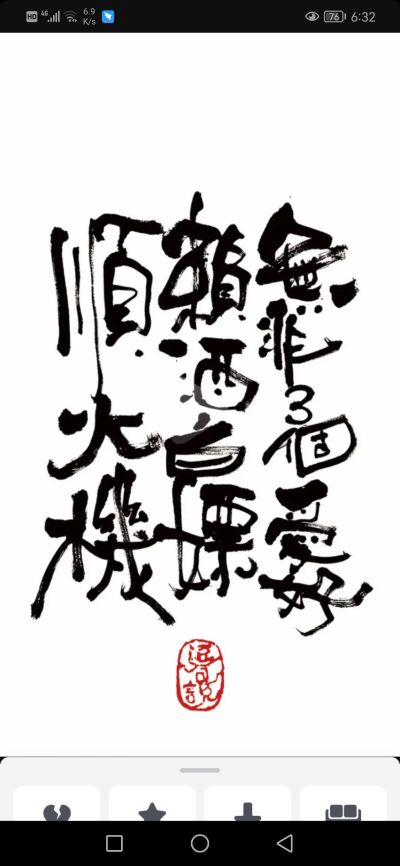 HD 4G 6.9 K/s 76 6:32
無非3個愛好
賴酒白嫖
順火機